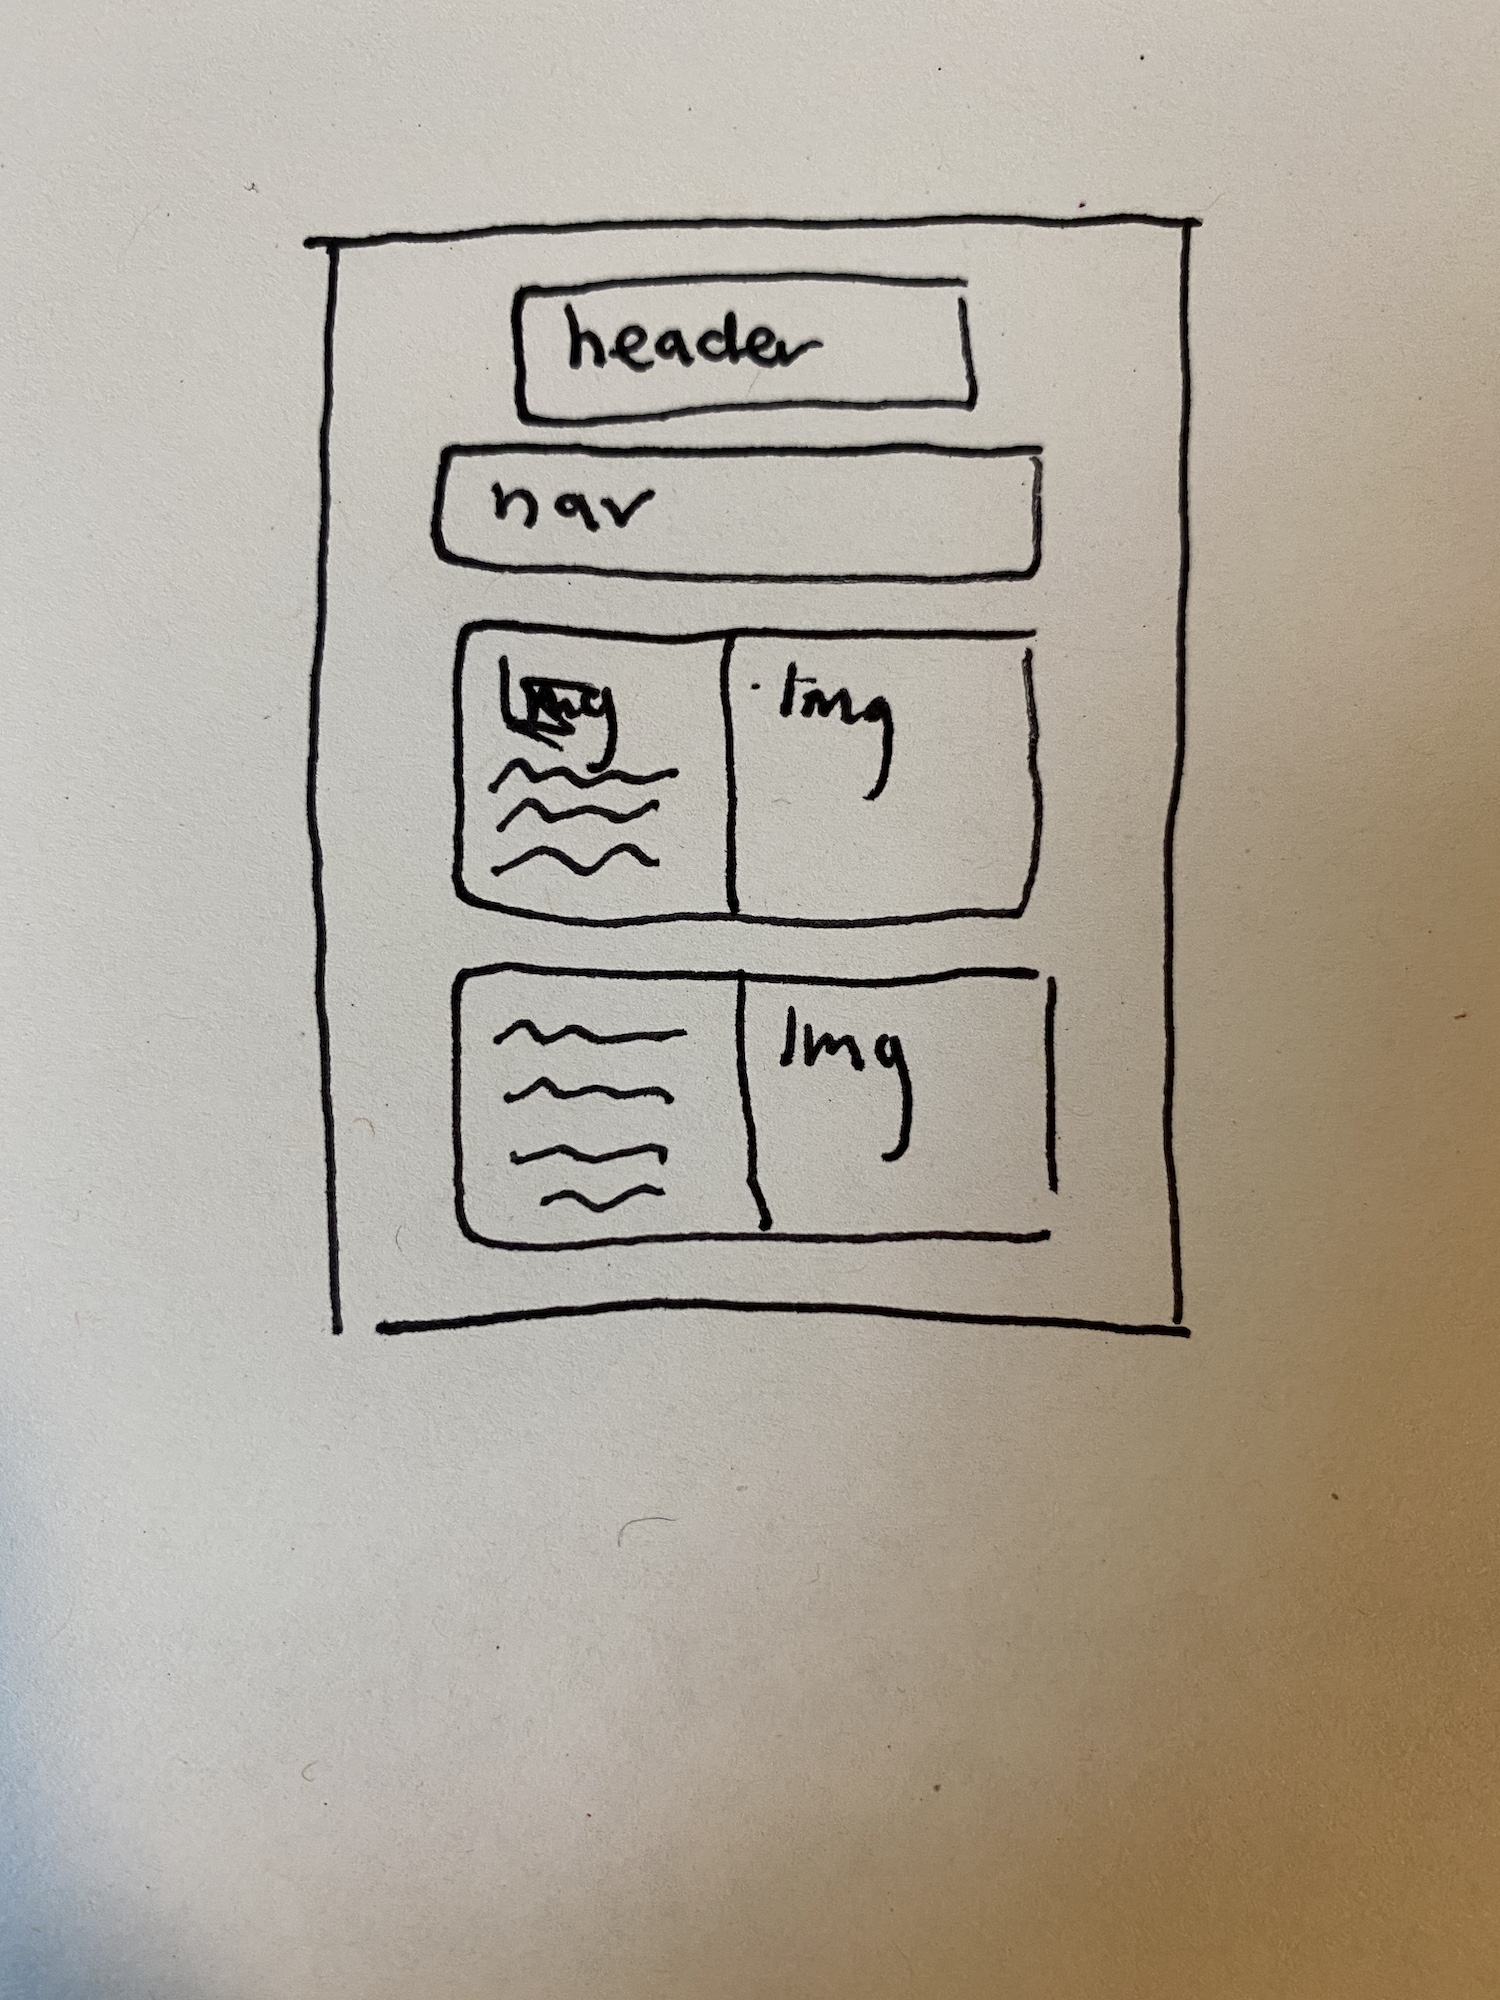 header
nav
Img
Img